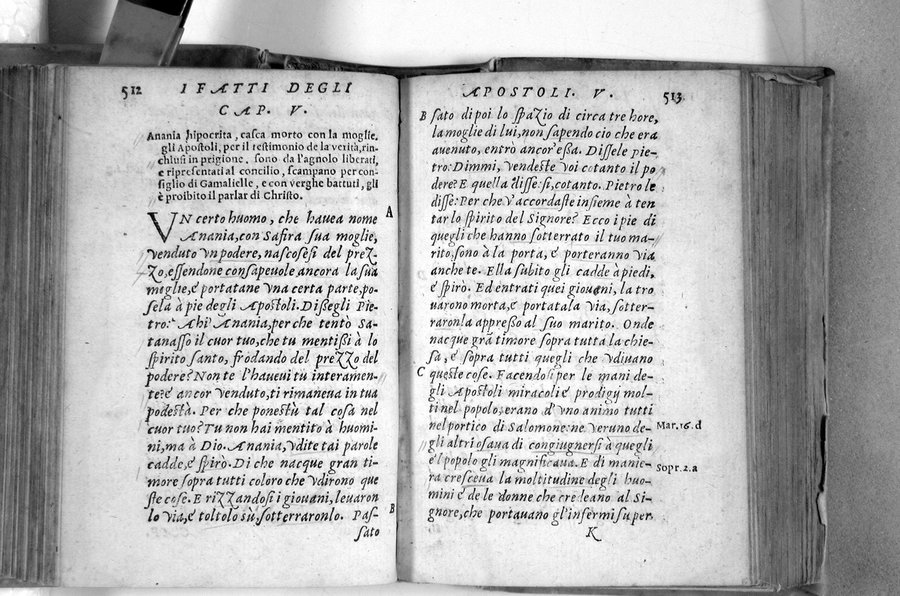 512 I FATTI DEGLI
CAP. V.
Anania hipocrita, casca morto con la moglie.
gli Apostoli, per il restimonio de la verità, rin-
chiusi in prigione, sono da l'agnolo liberati,
e ripresentati al concilio, scampano per con-
siglio di Gamalielle, e con verghe battuti, gli
è proibito il parlar di Christo.
A
VN certo huomo, che hauea nome
Anania, con Safira sua moglie,
venduto vn podere, nascosesi del prez-
zo, essendone consapeuole ancora la sua
moglie, e portatane vna certa parte, po-
sela à pie degli Apostoli. Dissegli Pie-
tro: Ahi Anania, per che tentò Sa-
tanasso il cuor tuo, che tu mentissi à lo
spirito santo, frodando del prezzo del
podere? Non te l'haueui tu interamen-
te? e ancor venduto, ti rimaneua in tua
podestà. Per che ponestù tal cosa nel
cuor tuo? Tu non hai mentito à huomi-
ni, ma à Dio. Anania, vdite tai parole
cadde, e spirò. Di che nacque gran ti-
more sopra tutti coloro che vdirono que
ste cose. E rizzandosi i giouani, leuaron
lo via, e toltolo sù, sotterraronlo. Pas-
B
sato
APOSTOLI. V. 513
B sato dipoi lo spazio di circa tre hore,
la moglie di lui, non sapendo cio che era
auenuto, entrò ancor'essa. Dissele pie-
tro: Dimmi, vendeste voi cotanto il po
dere? E quella disse: si, cotanto. Pietro le
disse: Per che v'accordaste insieme à ten
tar lo spirito del Signore? Ecco i pie di
quegli che hanno sotterrato il tuo ma-
rito, sono à la porta, e porteranno via
anche te. Ella subito gli cadde à piedi,
e spirò. Ed entrati quei giouani, la tro
uarono morta, e portatala via, sotter-
raronla appresso al suo marito. Onde
nacque grā timore sopra tutta la chie-
sa, e sopra tutti quegli che vdiuano
C queste cose. Facendosi per le mani de-
gli Apostoli miracoli e prodigy mol-
ti nel popolo, erano d'vno animo tutti
nel portico di Salomone: ne veruno de-
Mar. 16. d
gli altri osaua di congiugnersi à quegli
e'l popolo gli magnificaua. E di manie-
sopr. 2. a
ra cresceua la moltitudine degli huo-
mini e de le donne che credeano al Si-
gnore, che portauano gl'infermi su per
K